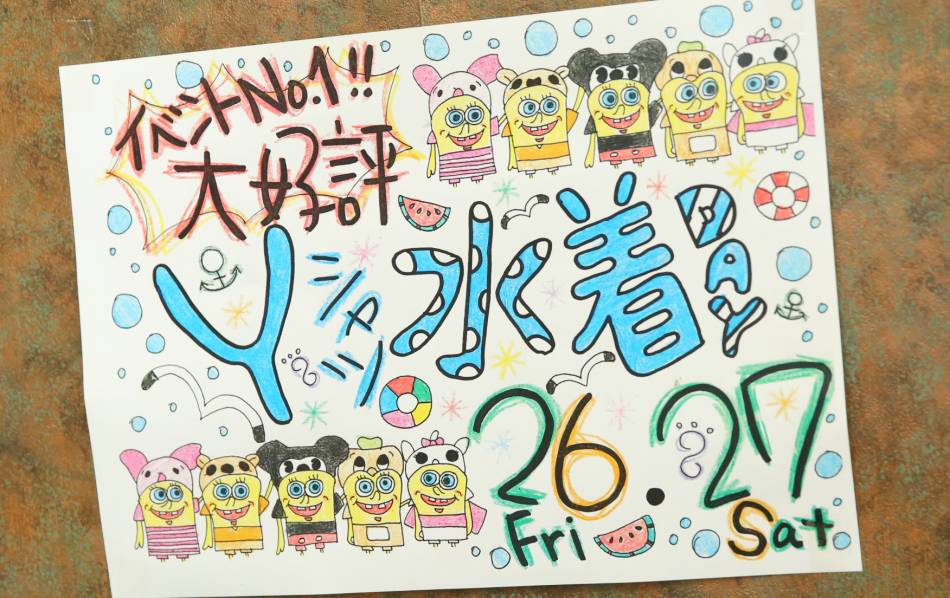 イベントNo.1!!
大好評
Yシャツ水着DAY
26.27
Fri Sat